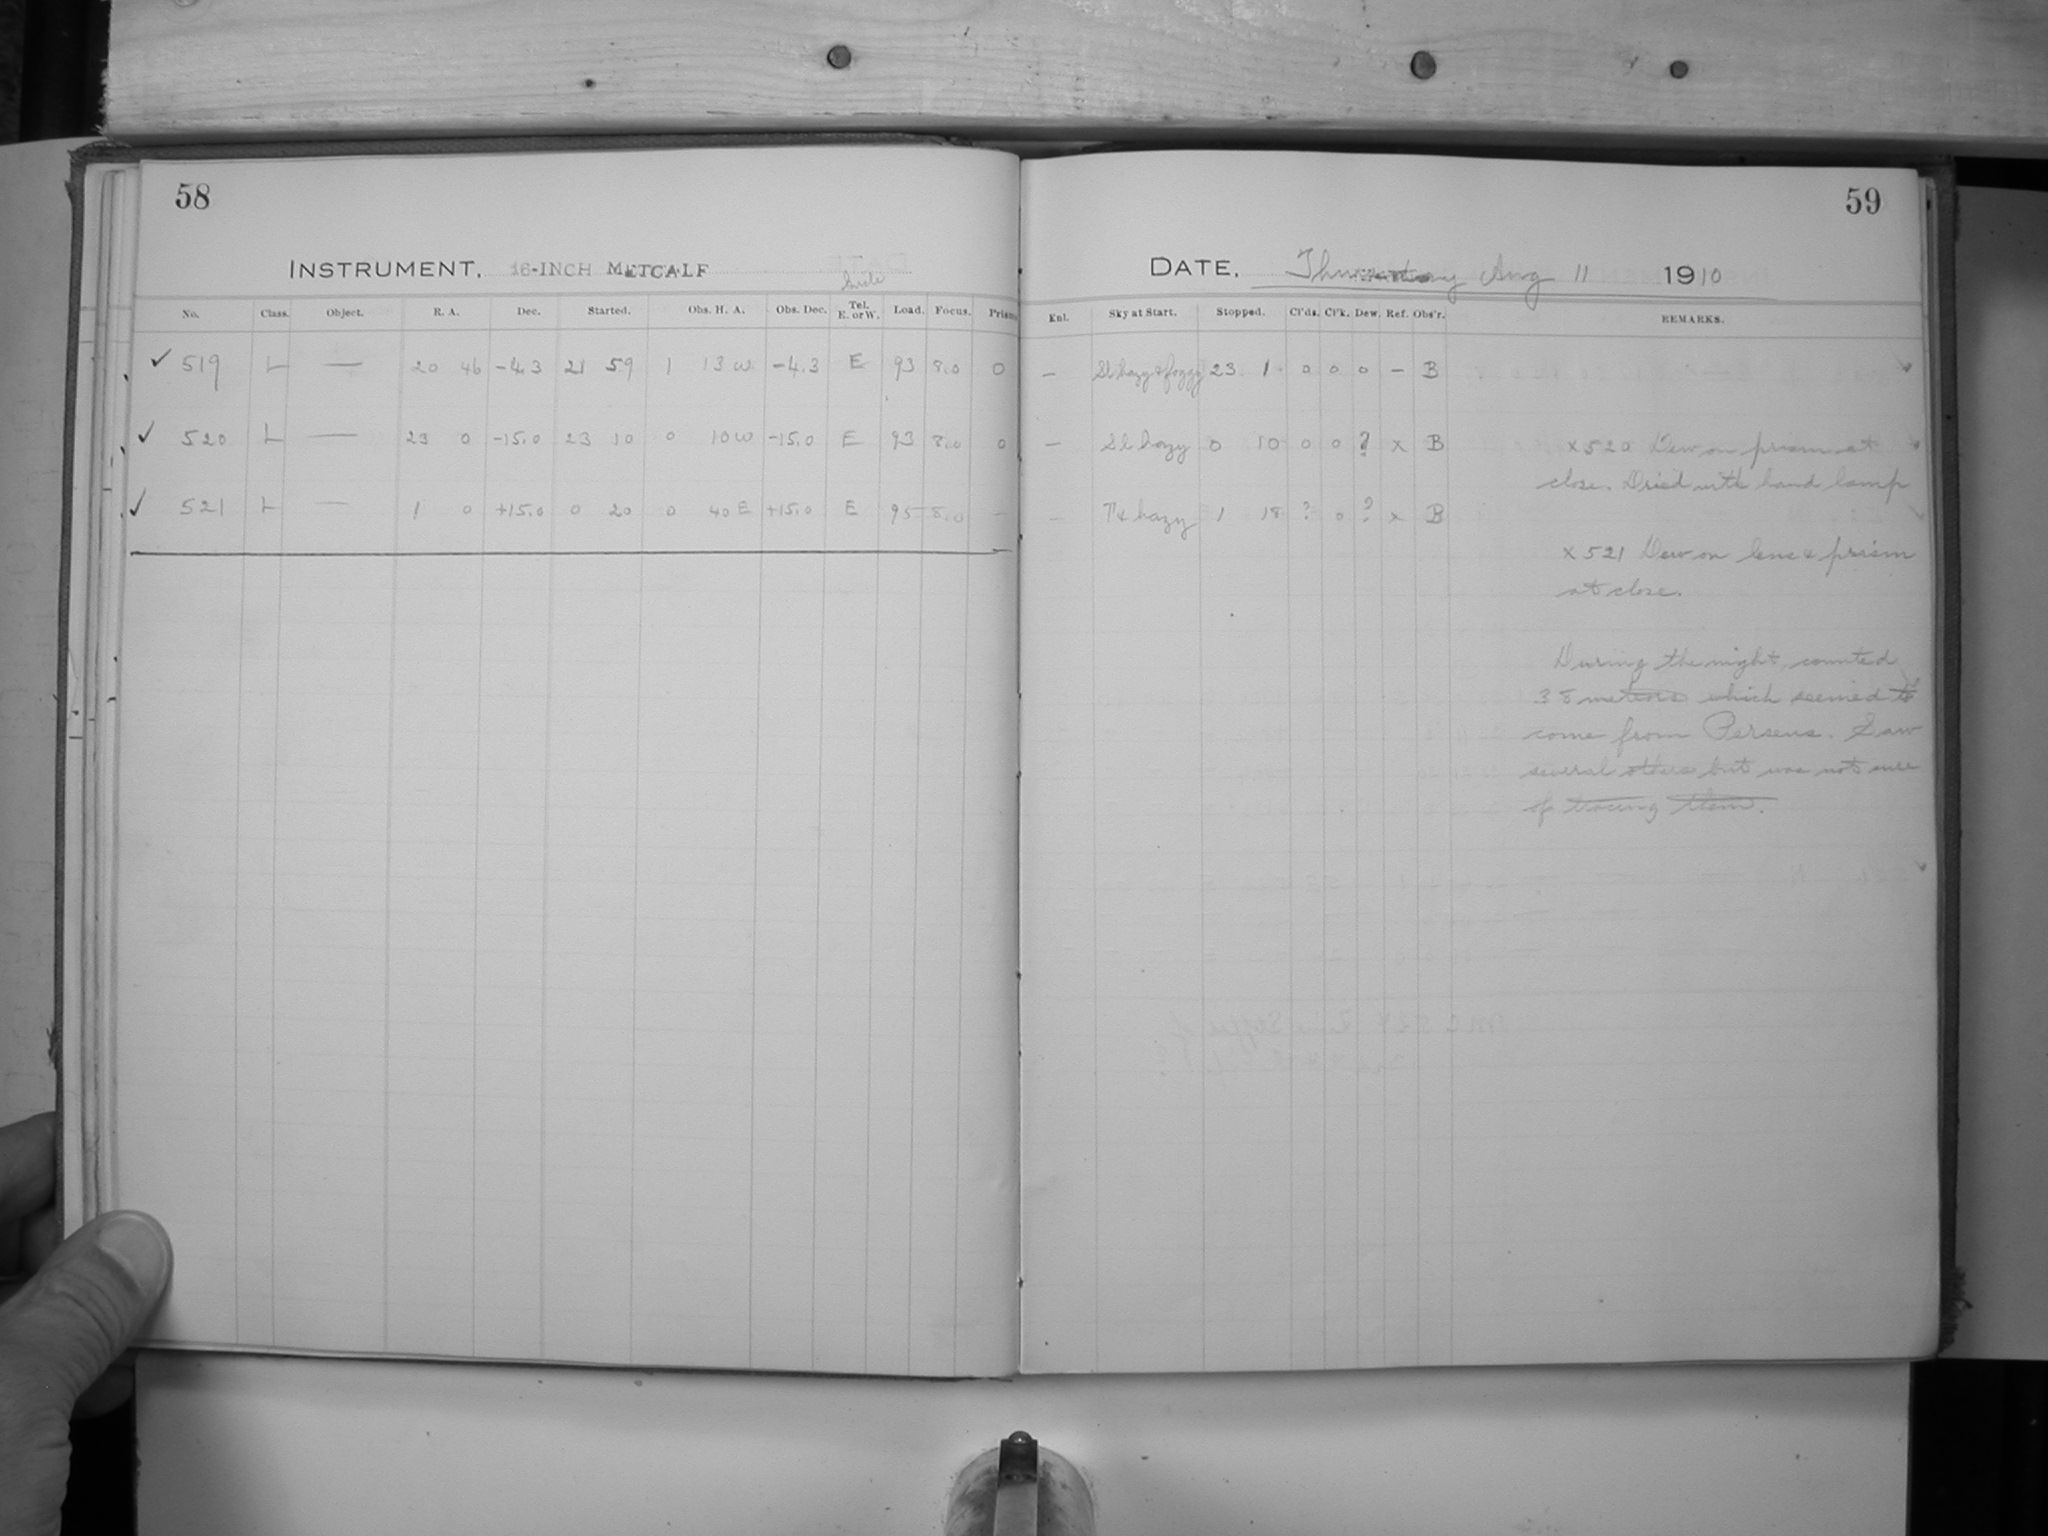 58
INSTRUMENT. 16-INCH METCALF
No. Class. Object. R. A. Dec. Started. Obs. H. A. Obs. Dec. Tel. E. or W. Load. Focus. Prism
✓ 519 L — 20 46 -4.3 21 59 1 13 W -4.3 E 93 8.0 0
✓ 520 L — 23 0 -15.0 23 10 0 10 W -15.0 E 93 8.0 0
✓ 521 L — 1 0 +15.0 0 20 0 40 E +15.0 E 95 8.0 –
59
DATE. Thursday Aug 11 1910
Enl. Sky at Start. Stopped. Cl'ds. Cl'k. Dew. Ref. Obs'r. REMARKS.
– Sl hazy & foggy 23 1 0 0 0 – B
– Sl hazy 0 10 0 0 ? x B
– hazy 1 18 ? 0 ? x B
x 520 Dew on prism at
close. Dried with hand lamp
x 521 Dew on lens & prism
at close.
During the night, counted
38 meteors which seemed to
come from Perseus. Saw
several others but was not sure
of tracing them.